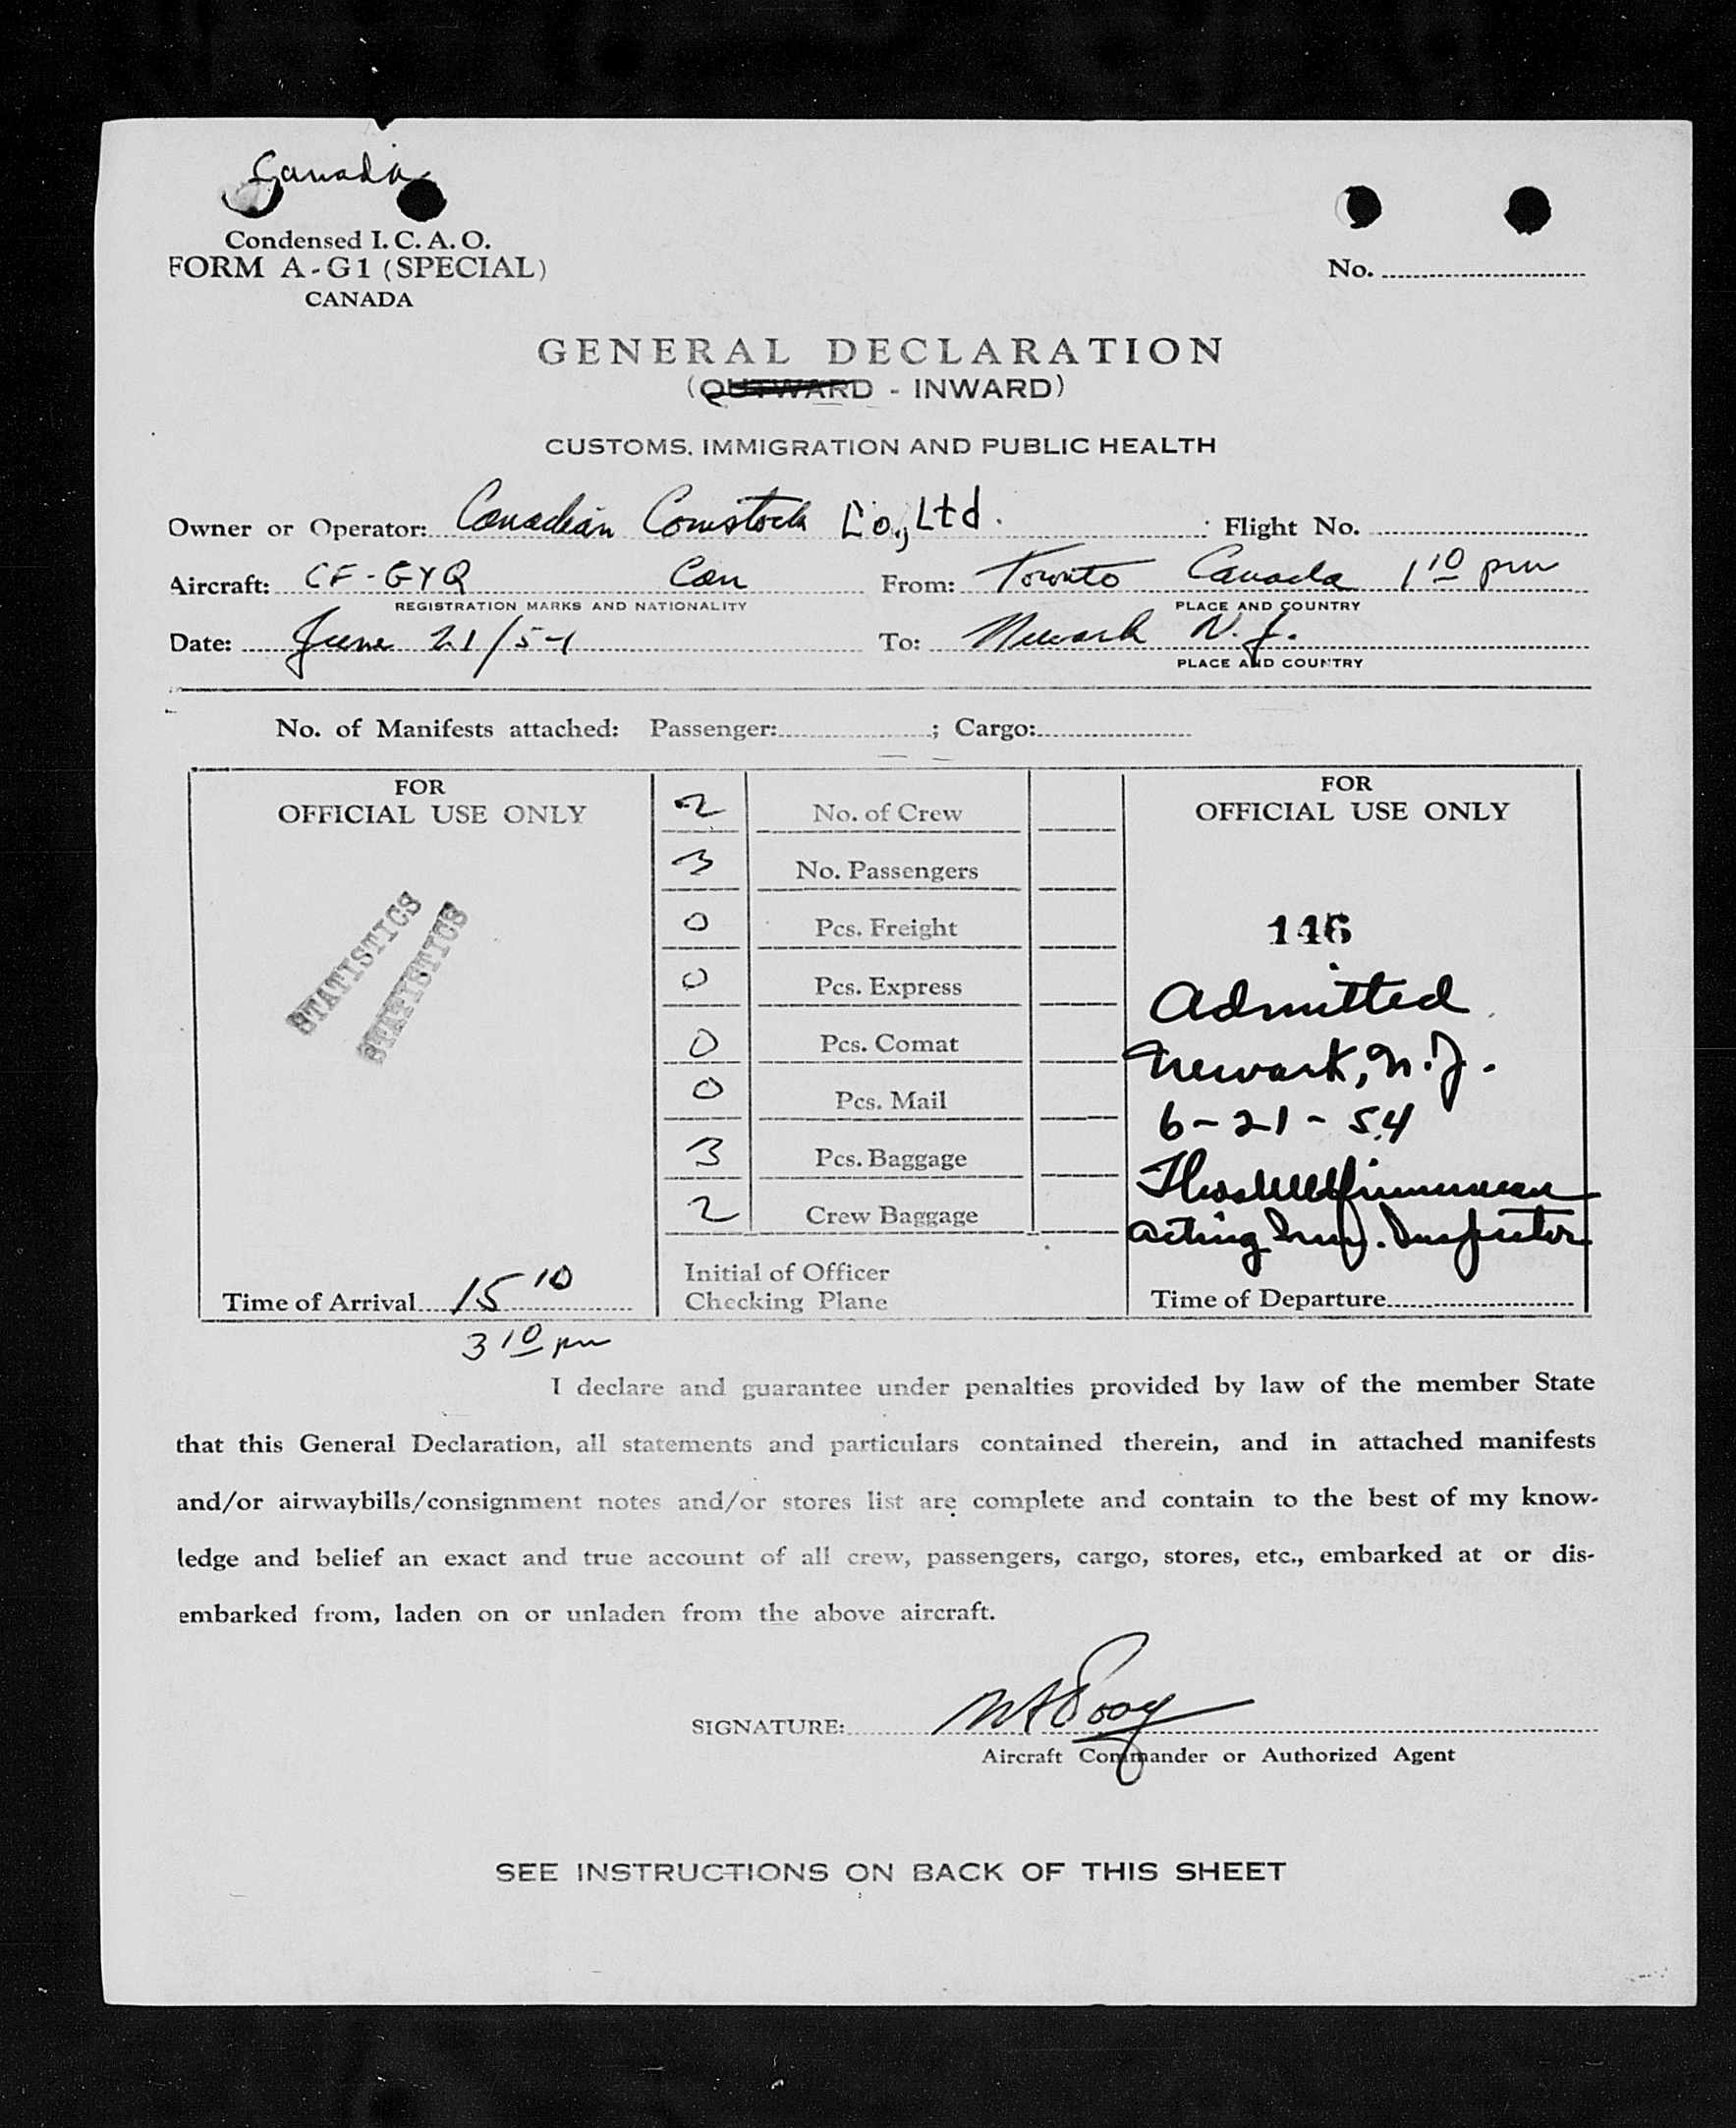 Canada
Condensed I. C. A. O.
FORM A-G1 (SPECIAL)
CANADA
No.
GENERAL DECLARATION
(OUTWARD - INWARD)
CUSTOMS, IMMIGRATION AND PUBLIC HEALTH
Owner or Operator: Canadian Comstock Co., Ltd. Flight No.
Aircraft: CF-GYQ Can From: Toronto Canada 1 10 pm
REGISTRATION MARKS AND NATIONALITY PLACE AND COUNTRY
Date: June 21/54 To: Newark N.J.
PLACE AND COUNTRY
No. of Manifests attached: Passenger: ; Cargo:
FOR
OFFICIAL USE ONLY
STATISTICS
STATISTICS
Time of Arrival 15 10
3 10 pm
2 No. of Crew
3 No. Passengers
0 Pcs. Freight
0 Pcs. Express
0 Pcs. Comat
0 Pcs. Mail
3 Pcs. Baggage
2 Crew Baggage
Initial of Officer
Checking Plane
FOR
OFFICIAL USE ONLY
146
Admitted
Newark, N.J.
6-21-54
Acting Imm. Inspector
Time of Departure
I declare and guarantee under penalties provided by law of the member State
that this General Declaration, all statements and particulars contained therein, and in attached manifests
and/or airwaybills/consignment notes and/or stores list are complete and contain to the best of my know-
ledge and belief an exact and true account of all crew, passengers, cargo, stores, etc., embarked at or dis-
embarked from, laden on or unladen from the above aircraft.
SIGNATURE:
Aircraft Commander or Authorized Agent
SEE INSTRUCTIONS ON BACK OF THIS SHEET